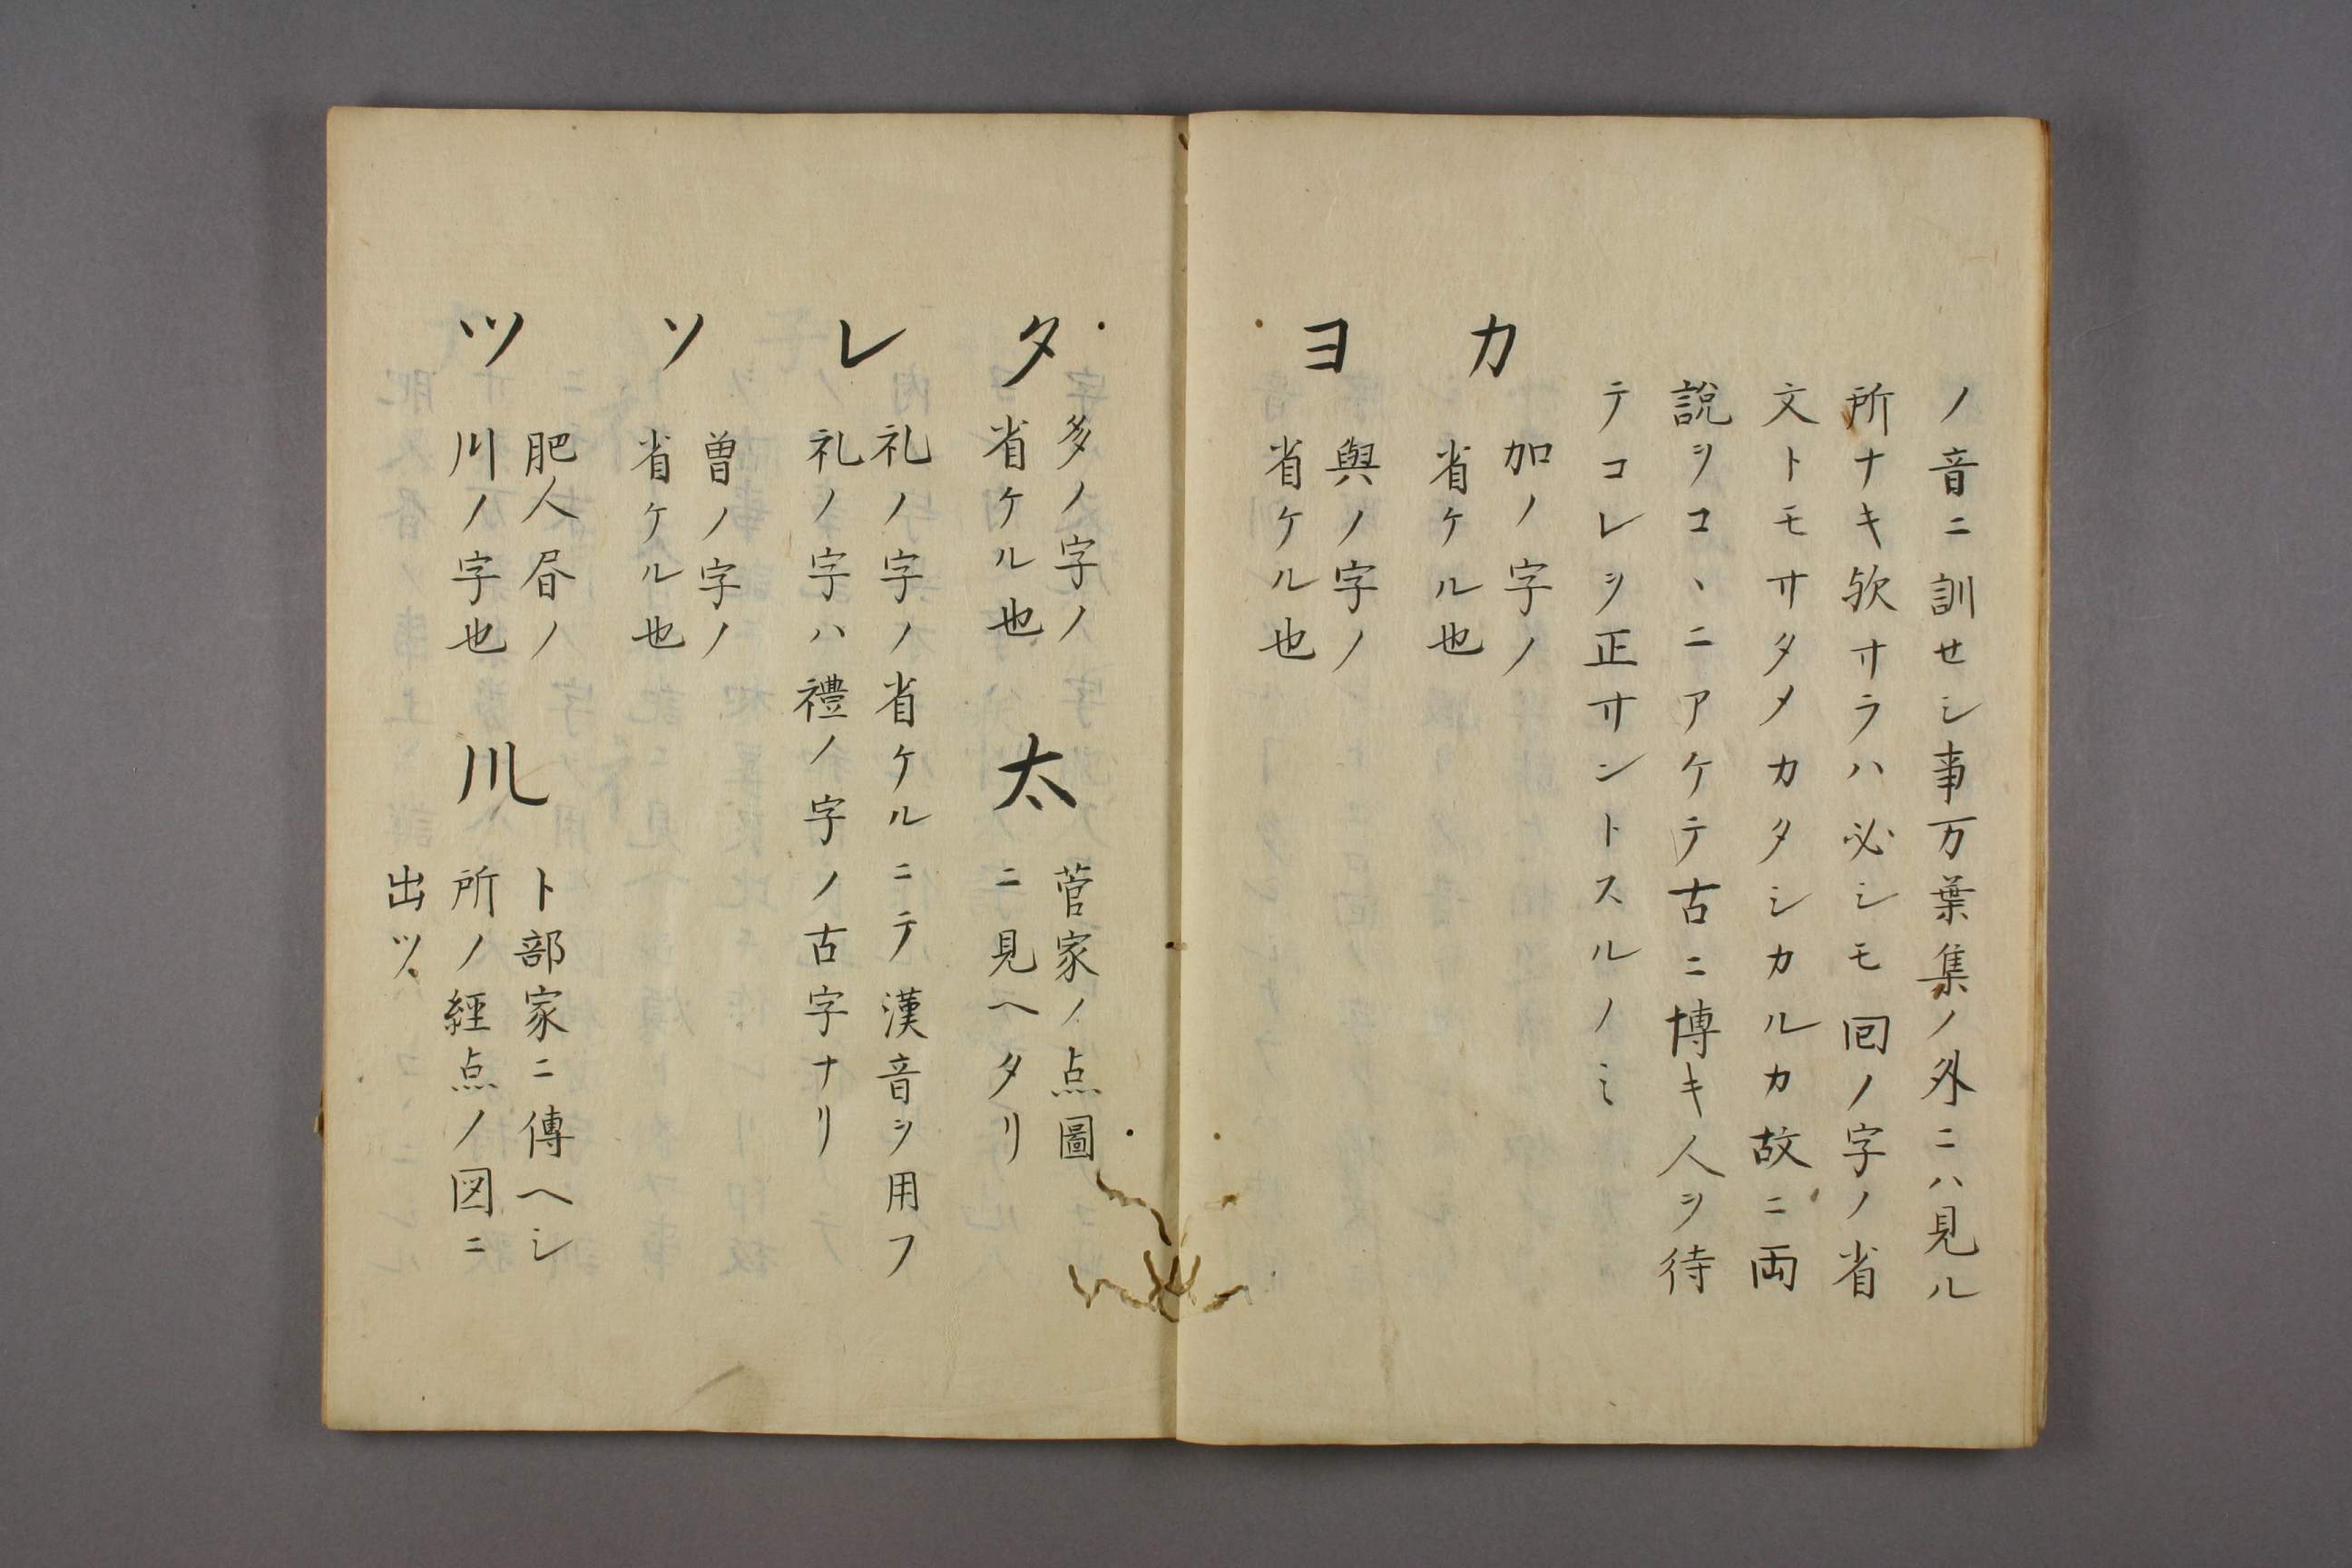 ノ音ニ訓セシ事万葉集ノ外ニハ見ル
所ナキ欤サラハ必シモ回ノ字ノ省
文トモサタメカタシカルカ故ニ両
説ヲコヽニアケテ古ニ博キ人ヲ待
テコレヲ正サントスルノミ
カ
加ノ字ノ
省ケル也
ヨ
與ノ字ノ
省ケル也
タ
多ノ字ノ
省ケル也
太
菅家ノ点圖
ニ見ヘタリ
レ
礼ノ字ノ省ケルニテ漢音ヲ用フ
礼ノ字ハ禮ノ字ノ古字ナリ
ソ
曽ノ字ノ
省ケル也
ツ
肥人昏ノ
川ノ字也
川
卜部家ニ傳ヘシ
所ノ経点ノ図ニ
出ツ